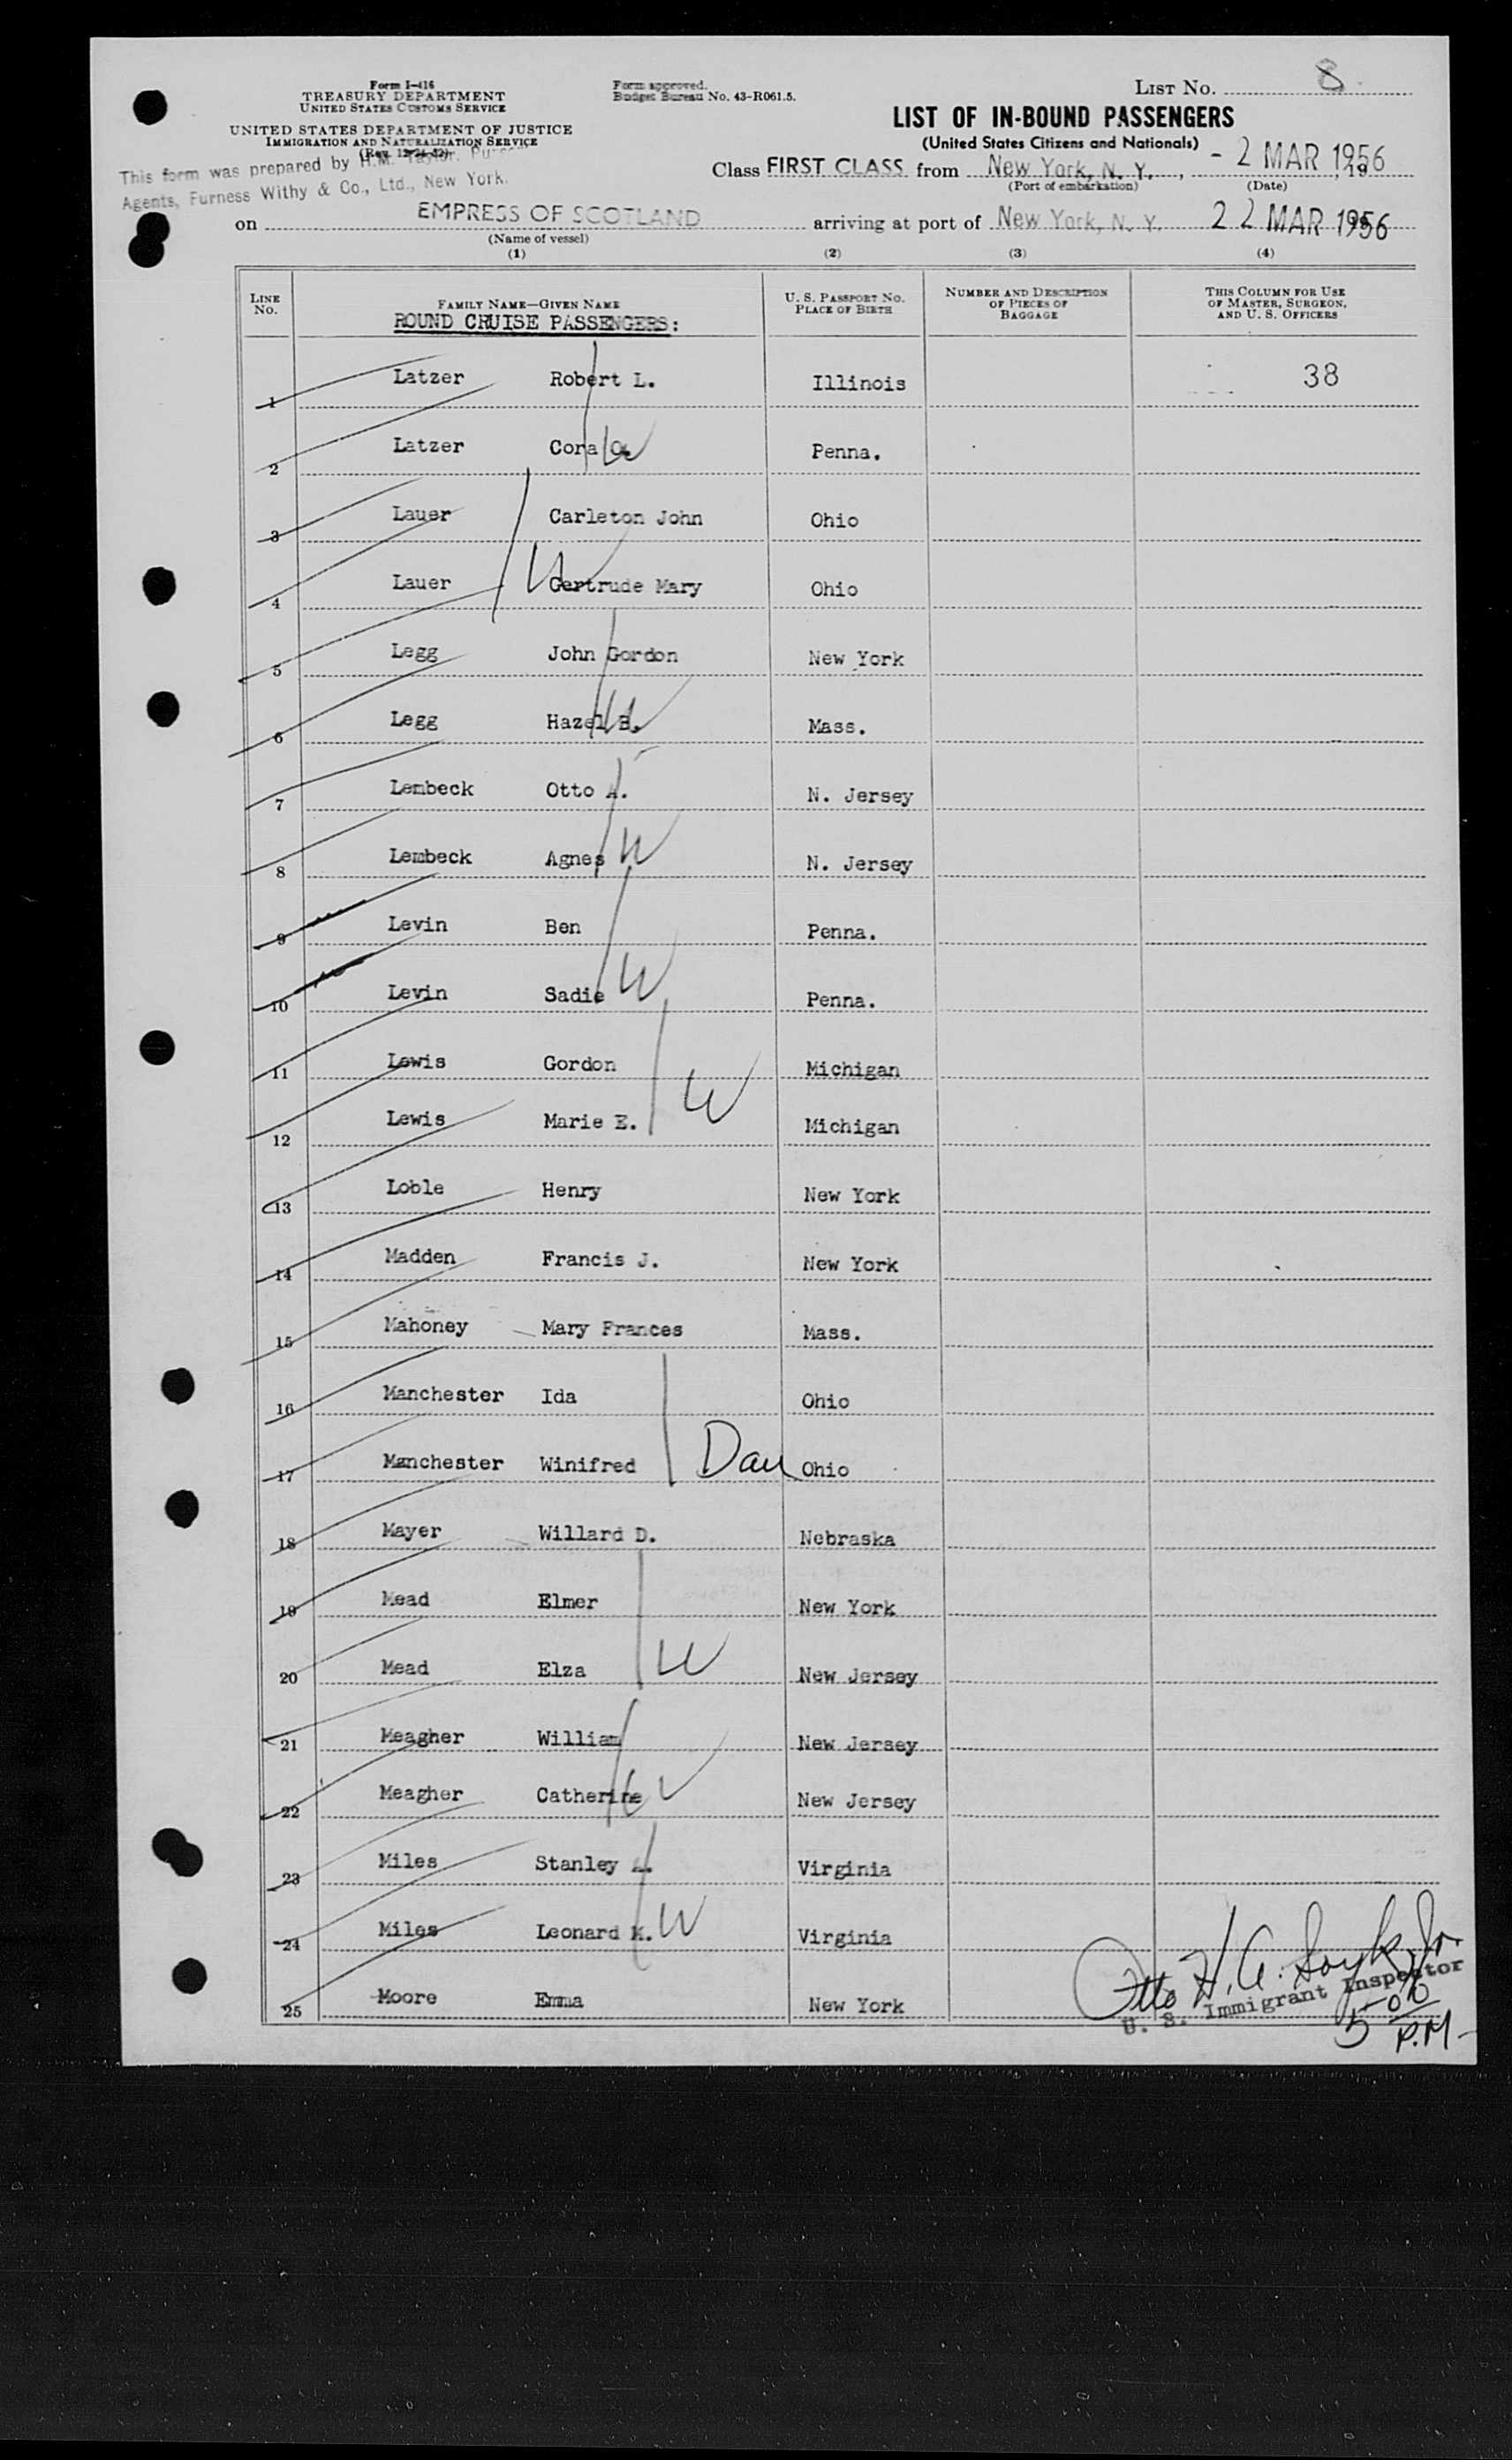 Form I-416
TREASURY DEPARTMENT
UNITED STATES CUSTOMS SERVICE
UNITED STATES DEPARTMENT OF JUSTICE
IMMIGRATION AND NATURALIZATION SERVICE
(Rev.
This form was prepared by H.M. Taylor, Purser
Agents, Furness Withy & Co., Ltd., New York.
Form approved.
Budget Bureau No. 43-R061.5.
LIST NO. 8
LIST OF IN-BOUND PASSENGERS
(United States Citizens and Nationals)
Class FIRST CLASS from New York, N. Y., - 2 MAR 1956, 19
(Port of embarkation) (Date)
on EMPRESS OF SCOTLAND arriving at port of New York, N. Y. 22 MAR 1956
(Name of vessel)
(1) (2) (3) (4)
LINE NO. FAMILY NAME—GIVEN NAME U. S. PASSPORT NO. PLACE OF BIRTH NUMBER AND DESCRIPTION OF PIECES OF BAGGAGE THIS COLUMN FOR USE OF MASTER, SURGEON, AND U. S. OFFICERS
ROUND CRUISE PASSENGERS:
1 Latzer Robert L. Illinois 38
2 Latzer Cora W Penna.
3 Lauer Carleton John Ohio
4 Lauer W Gertrude Mary Ohio
5 Legg John Gordon New York
6 Legg Hazel B. W Mass.
7 Lembeck Otto A. N. Jersey
8 Lembeck Agnes W N. Jersey
9 Levin Ben Penna.
10 Levin Sadie W Penna.
11 Lewis Gordon Michigan
12 Lewis Marie E. W Michigan
13 Loble Henry New York
14 Madden Francis J. New York
15 Mahoney Mary Frances Mass.
16 Manchester Ida Ohio
17 Manchester Winifred Dau Ohio
18 Mayer Willard D. Nebraska
19 Mead Elmer New York
20 Mead Elza W New Jersey
21 Meagher William New Jersey
22 Meagher Catherine W New Jersey
23 Miles Stanley A. Virginia
24 Miles Leonard K. W Virginia
25 Moore Emma New York
Otto H. A. Soyk, Jr.
U. S. Immigrant Inspector
5-00
P.M-